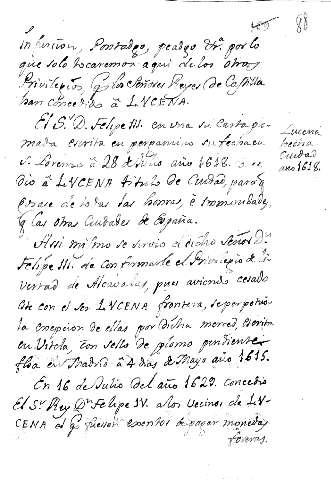 88
infurcion, Pontadgo, peadgo &ra. por lo
que solo tocaremos aqui de los otros
Privilegios, q los Señores Reyes de Castilla
han concedido â LVCENA.
El S.r D. Felipe III. en una su Carta
mada escrita en pergamino su fecha en
S. Lorenzo â 28 de año 1618.
dió â LVCENA titulo de Ciudad, para q
gozase de todas las honras, é immunidades,
q las otras Ciudades de España.
Lucena
hecha
Ciudad
año 1618.
Assi mismo se sirvio el dicho Señor D.n
Felipe III. de confirmarle el Privilegio de Li-
vertad de Alcavalas, pues aviendo cesado
este con el ser LVCENA frontera, se perpetuó
la exempcion de ellas por dicha merced, escrita
en Vitela, con sello de plomo pendiente
fha en Madrid â 4 dias de Mayo año 1615.
En 16 de Julio del año 1629. concedio
El S.r Rey D.n Felipe IV. a los Vecinos de LV-
CENA el q fuesen exentos de pagar monedas
foreras.